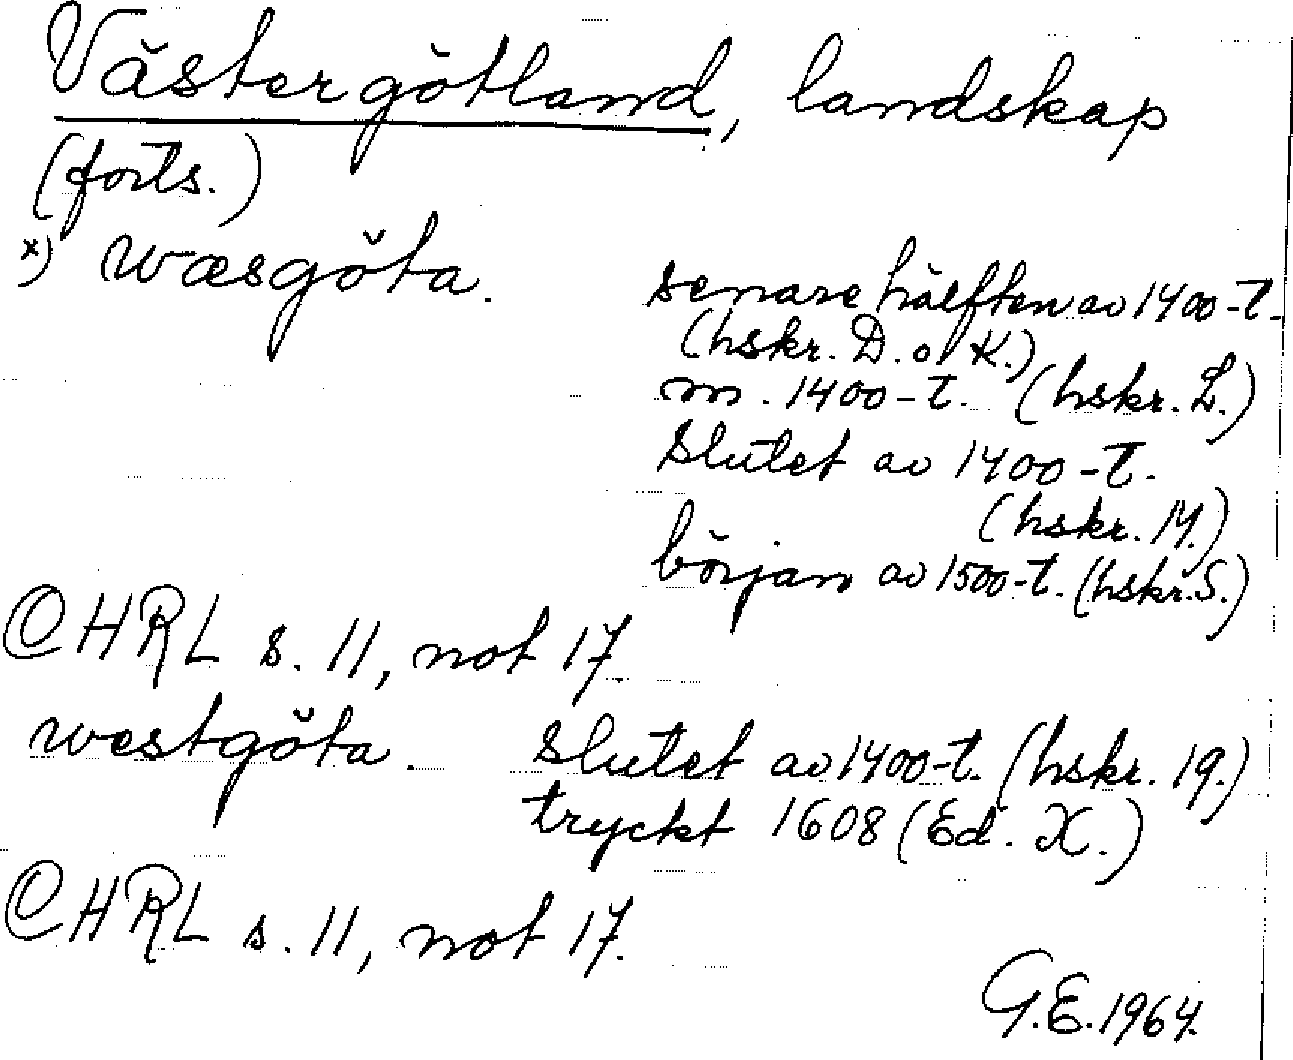 Västergötland, landskap
(forts.)
x) wæsgöta. senare hälften av 1400-t.
(hskr. D. o K.)
m. 1400-t. (hskr. L.)
slutet av 1400-t.
(hskr. M.)
början av 1500-t. (hskr. S.)
CHRL s. 11, not 17.
westgöta. slutet av 1400-t. (hskr. 19.)
tryckt 1608 (Ed. X.)
CHRL s. 11, not 17.
G.E. 1964.